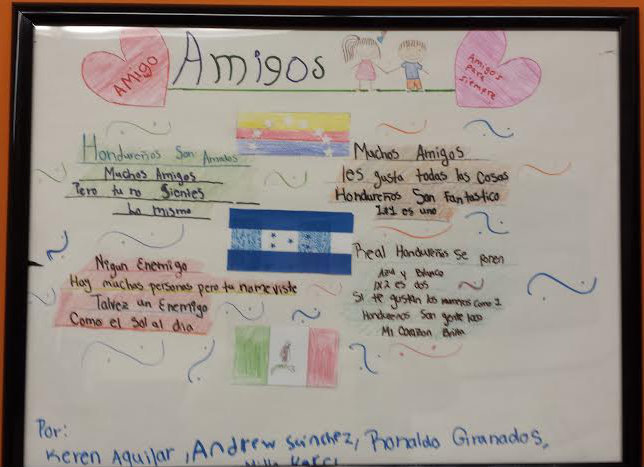 AMIGO
Amigos
Amigos
para
siempre
Hondureños Son Amados
Muchos Amigos
Pero tu no Sientes
Lo mismo
Muchos Amigos
les gusta todas las Cosas
Hondureños Son Fantastico
1x1 es uno
Nigun Enemigo
Hay muchas personas pero tu nomeviste
Talvez un Enemigo
Como el Sol al dia
Real Hondureños Se ponen
Azul y Blanco
1x2 es dos
Si te gustan los numeros como 1
Hondurenos Son gente loco
Mi Corazon Brillo
Por:
Keren Aguilar, Andrew Sanchez, Ronaldo Granados,